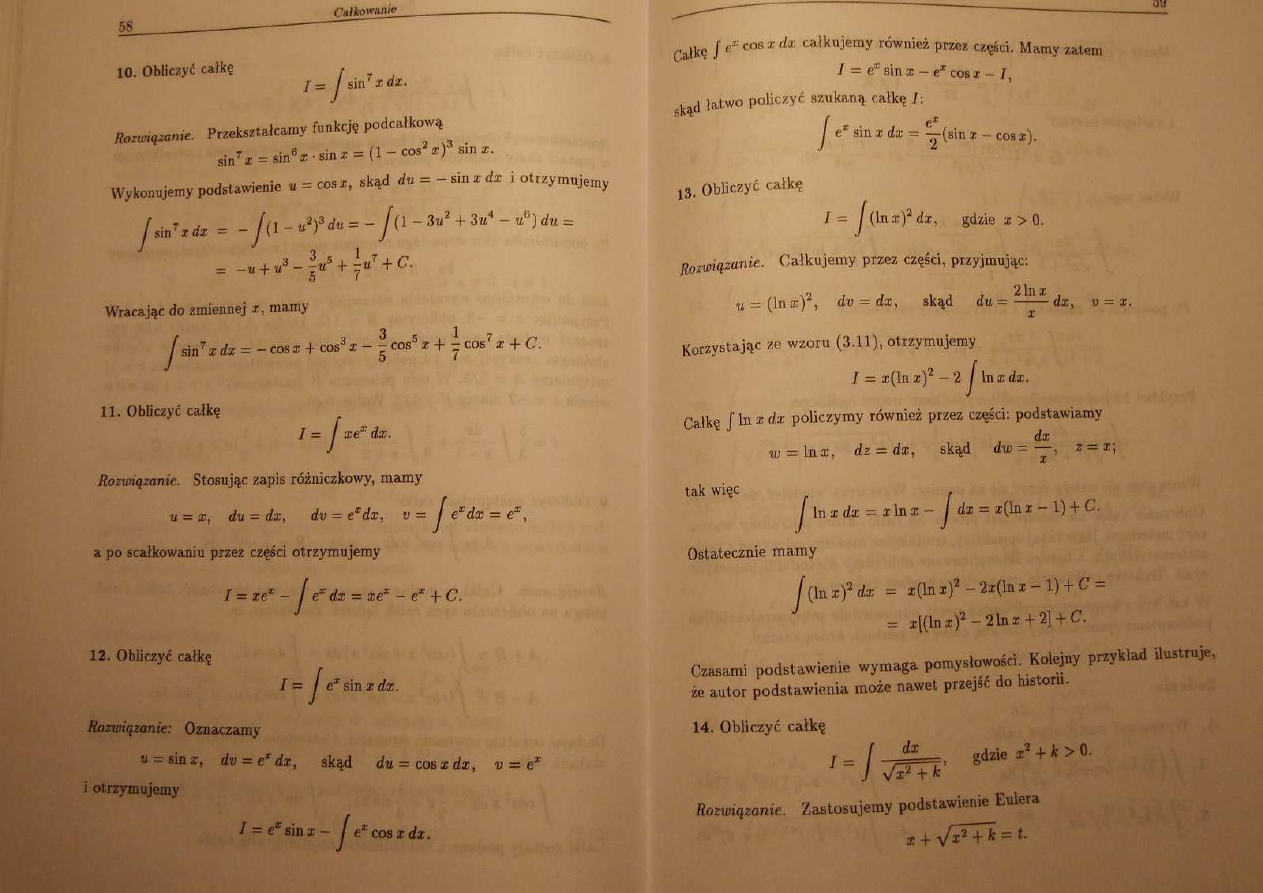 58
Całkowanie
10. Obliczyć całkę
I = ∫ sin⁷ x dx.
Rozwiązanie. Przekształcamy funkcję podcałkową
sin⁷ x = sin⁶ x · sin x = (1 − cos² x)³ sin x.
Wykonujemy podstawienie u = cos x, skąd du = − sin x dx i otrzymujemy
∫ sin⁷ x dx = − ∫ (1 − u²)³ du = − ∫ (1 − 3u² + 3u⁴ − u⁶) du =
= −u + u³ − 3/5 u⁵ + 1/7 u⁷ + C.
Wracając do zmiennej x, mamy
∫ sin⁷ x dx = − cos x + cos³ x − 3/5 cos⁵ x + 1/7 cos⁷ x + C.
11. Obliczyć całkę
I = ∫ xeˣ dx.
Rozwiązanie. Stosując zapis różniczkowy, mamy
u = x, du = dx, dv = eˣdx, v = ∫ eˣdx = eˣ,
a po scałkowaniu przez części otrzymujemy
I = xeˣ − ∫ eˣ dx = xeˣ − eˣ + C.
12. Obliczyć całkę
I = ∫ eˣ sin x dx.
Rozwiązanie: Oznaczamy
u = sin x, dv = eˣ dx, skąd du = cos x dx, v = eˣ
i otrzymujemy
I = eˣ sin x − ∫ eˣ cos x dx.
59
Całkę ∫ eˣ cos x dx całkujemy również przez części. Mamy zatem
I = eˣ sin x − eˣ cos x − I,
skąd łatwo policzyć szukaną całkę I:
∫ eˣ sin x dx = eˣ/2 (sin x − cos x).
13. Obliczyć całkę
I = ∫ (ln x)² dx, gdzie x > 0.
Rozwiązanie. Całkujemy przez części, przyjmując:
u = (ln x)², dv = dx, skąd du = 2 ln x/x dx, v = x.
Korzystając ze wzoru (3.11), otrzymujemy
I = x(ln x)² − 2 ∫ ln x dx.
Całkę ∫ ln x dx policzymy również przez części: podstawiamy
w = ln x, dz = dx, skąd dw = dx/x, z = x;
tak więc
∫ ln x dx = x ln x − ∫ dx = x(ln x − 1) + C.
Ostatecznie mamy
∫ (ln x)² dx = x(ln x)² − 2x(ln x − 1) + C =
= x[(ln x)² − 2 ln x + 2] + C.
Czasami podstawienie wymaga pomysłowości. Kolejny przykład ilustruje,
że autor podstawienia może nawet przejść do historii.
14. Obliczyć całkę
I = ∫ dx/√(x² + k), gdzie x² + k > 0.
Rozwiązanie. Zastosujemy podstawienie Eulera
x + √(x² + k) = t.